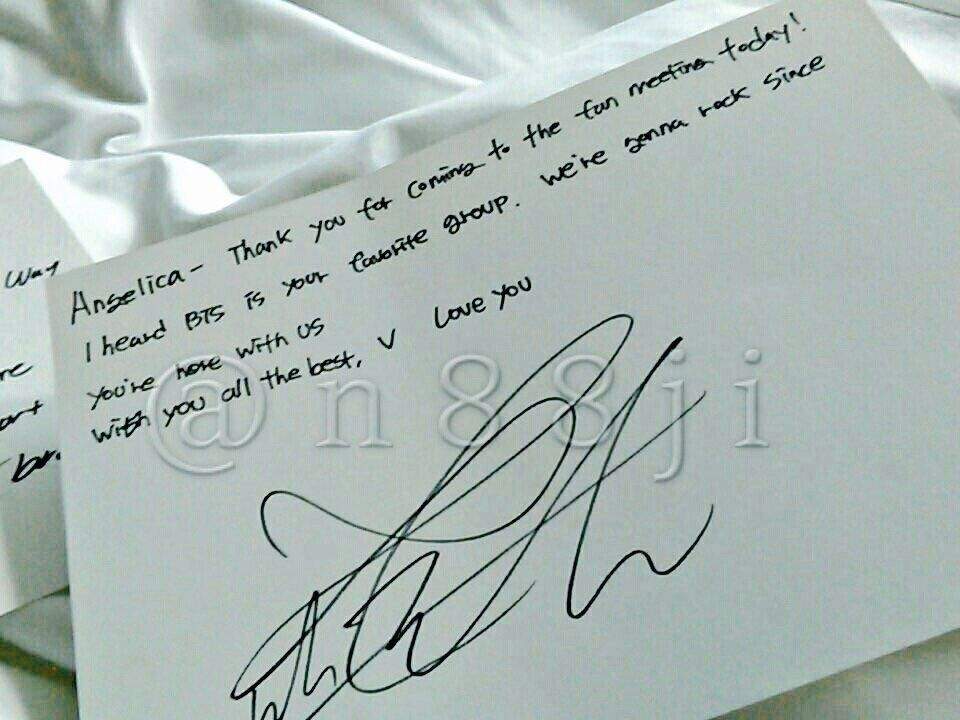 Angelica- Thank you for coming to the fan meeting today!
I heard BTS is your favorite group. We're gonna rock since
you're here with us
with you all the best, V Love you
@n88ji
way
re
art
br.